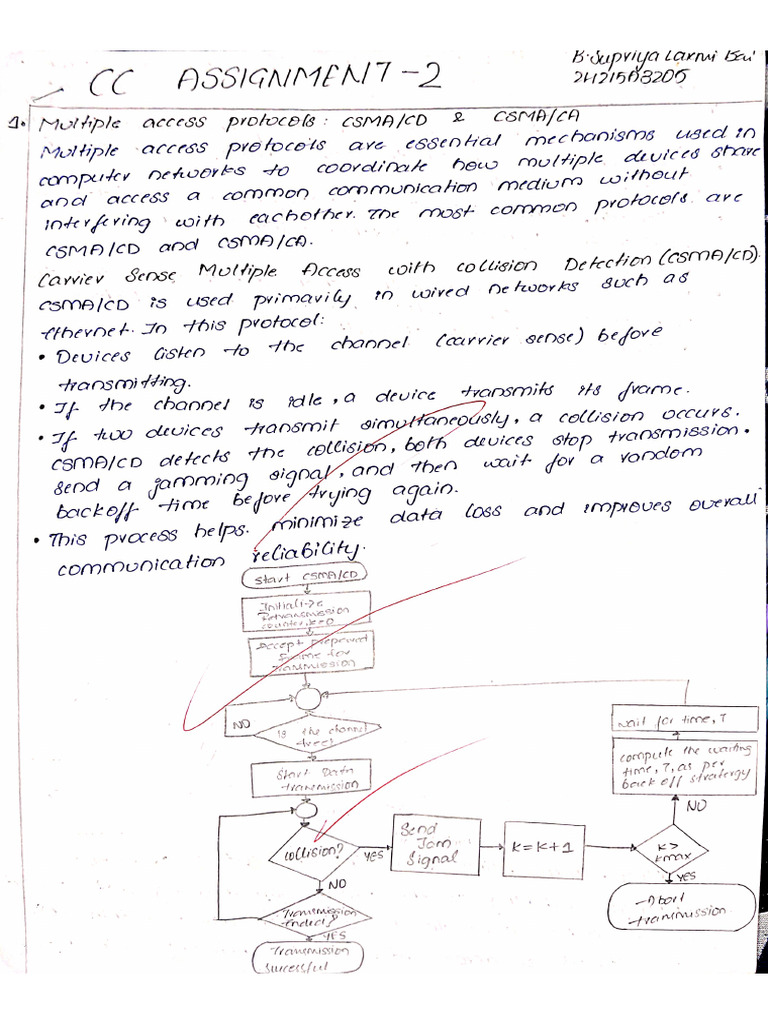 B. Supriya Laxmi Bai
CC ASSIGNMENT-2
1. Multiple access protocols: CSMA/CD & CSMA/CA
Multiple access protocols are essential mechanisms used in
computer networks to coordinate how multiple devices share
and access a common communication medium without
interfering with eachother. The most common protocols are
CSMA/CD and CSMA/CA.
Carrier Sense Multiple Access with Collision Detection (CSMA/CD).
CSMA/CD is used primarily in wired networks such as
Ethernet. In this protocol:
• Devices listen to the channel (carrier sense) before
transmitting.
• If the channel is idle, a device transmits its frame.
• If two devices transmit simultaneously, a collision occurs.
CSMA/CD detects the collision, both devices stop transmission.
send a jamming signal, and then wait for a random
backoff time before trying again.
• This process helps. minimize data loss and improves overall
communication reliability.
Start CSMA/CD
Initialize
Retransmission
counter, k=0
Accept prepared
Frame for
Transmission
NO
Is the channel
free?
Start Data
transmission
Collision?
YES
NO
Transmission
Ended?
YES
Transmission
successful
Send
Jam
Signal
K=K+1
K>
Kmax
NO
YES
Abort
transmission
compute the waiting
time, T, as per
back off stratergy
wait for time, T